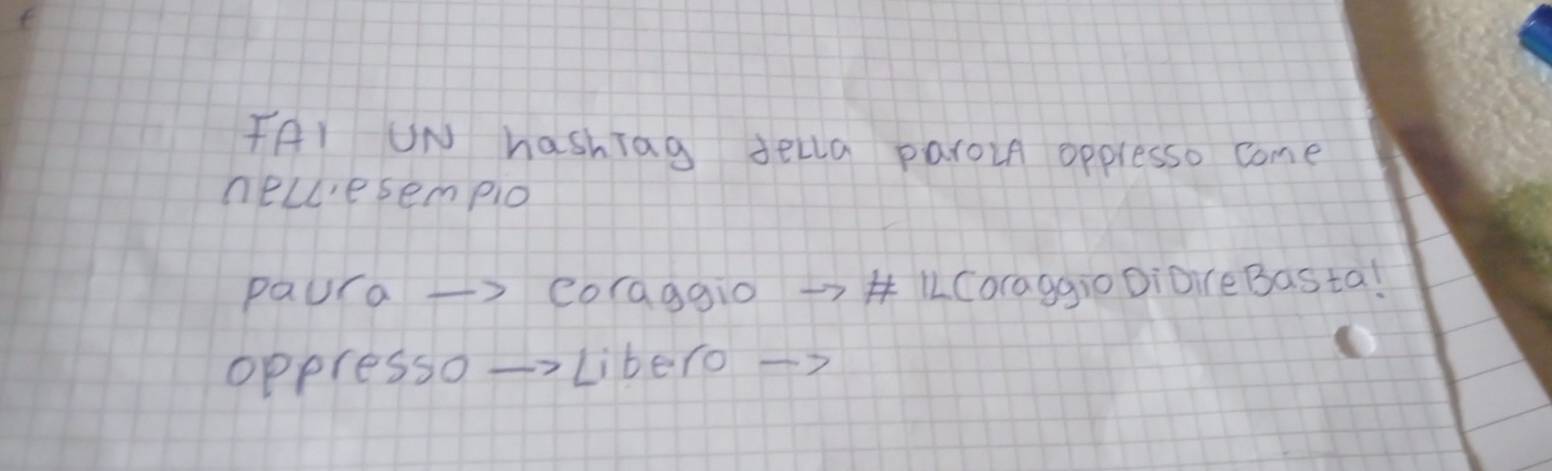 FAI UN hashTag della parola oppresso come
nell'esempio
paura -> coraggio -> # ILCoraggioDiDireBasta!
oppresso -> Libero ->